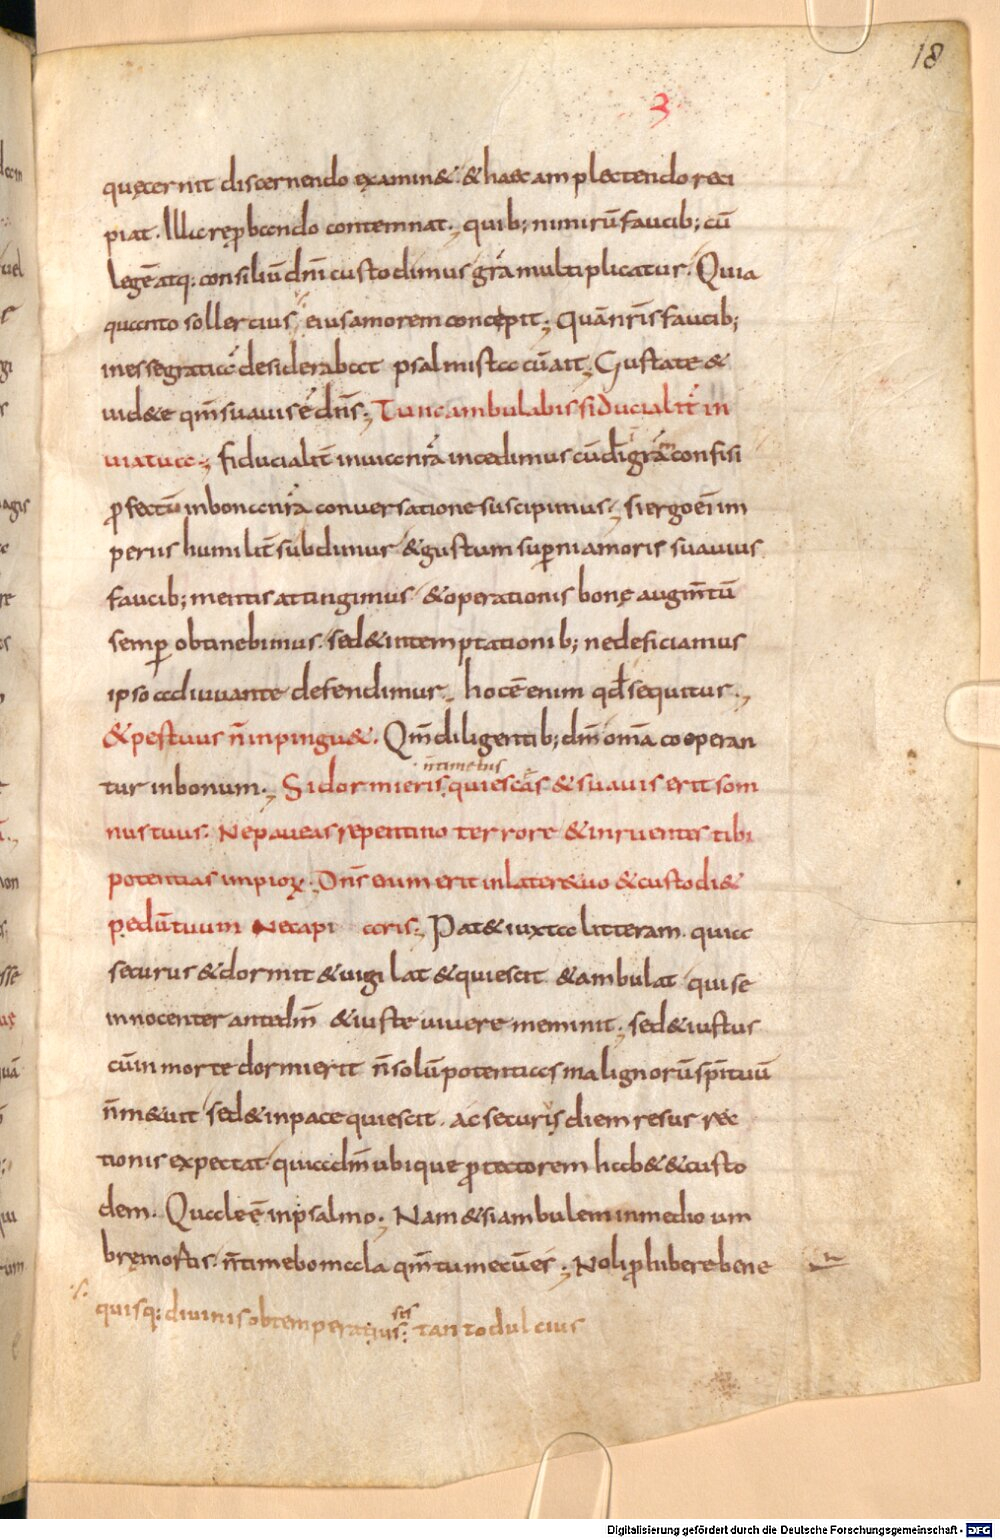 18
3
quęcernit discernendo examin& · & haec amplectendo reci
piat . Illa rep̱bando contemnat ; quib; nimirū faucib; cū
legē atq; consiliū dn̄i custodimus gr̄a multiplicatur . Quia
quanto sollertius eius amorem concepit ; Quā nr̄is faucib;
inesse gratiā desiderabat psalmista cū ait ; Gustate &
uid&e qm̄ suauis ē dn̄s ; Tunc ambulabis fiducialit̄ in
uia tua ; fiducialit̄ in uia nr̄a incedimus cū dī gr̄am confisi
ꝓfectū in bona nr̄a conuersatione suscipimus ; si ergo eī im
periis humilit̄ subdimur & gustum suꝑni amoris suauius
faucib; mentis attingimus & operationis bonę augm̄tū
semꝑ obtinebimus . sed & in temptationib; ne deficiamus
ipso adiuuante defendimur , hoc ē enim qd̄ sequitur ;
& pes tuus n̄ inping& . Qm̄ diligentib; dm̄ om̄a cooperan
n̄ timebis
tur in bonum ; Si dormieris quiesces & suauis erit som
nus tuus . Ne paueas repentino terrore & inruentes tibi
potentias impioꝝ . Dn̄s enim erit in latere tuo & custodi&
pedē tuum ne capiaris ; Pat& iuxta litteram . quia
securus & dormit & uigilat & quiescit & ambulat qui se
innocenter ante dm̄ & iuste uiuere meminit ; sed & iustus
cū in morte dormierit n̄ solū potentias malignorū spīrituū
n̄ m&uit sed & in pace quiescit . ac securus diem resurrec
tionis expectat quia dm̄ ubique ꝓtectorem hab& & custo
dem . Quale ē in psalmo ; Nam & si ambulem in medio um
brę mortis . n̄ timebo mala qm̄ tu mecū es ; Noli ꝓhibere bene
quisq; diuinis obtemperatius tanto dulcius